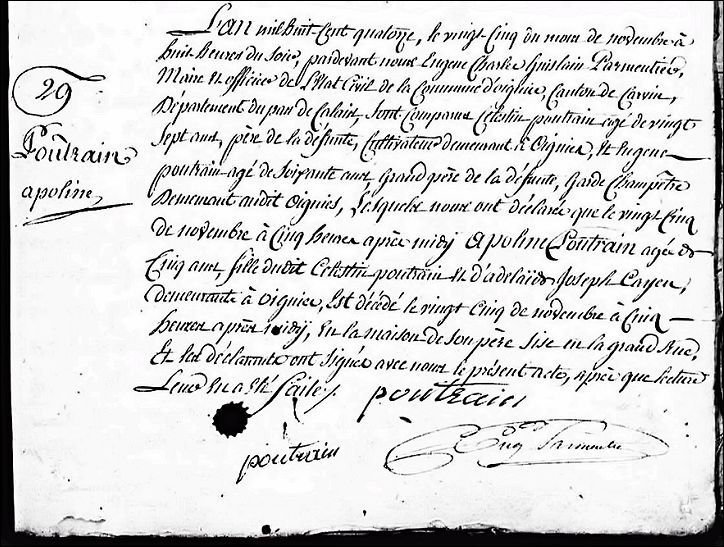 L'an mil huit Cent quatorze, le vingt Cinq du mois de novembre à
huit heures du Soir, pardevant nous Eugene Charle Ghislain Parmentier,
Maire et officier de L'Etat Civil de la Commune d'oignies, Canton de Carvin,
29
Département du pas de Calais, Sont Comparus Celestin poutrain agé de vingt
Sept ans, père de la défunte, Cultivateur demeurant à Oignies, Et Eugene
Poutrain
poutrain agé de Soixante ans, Grand père de la défunte, Garde Champêtre
apoline
Demeurant audit Oignies, Lesquels nous ont déclarés que le vingt Cinq
de novembre à Cinq heures après midy apoline Poutrain agée de
Cinq ans fille dudit Celestin poutrain et d'adelaïde Joseph Cayez,
demeurante à Oignies, Est décédé le vingt Cinq de novembre à Cinq
heures après midy, En la maison de Son père Sise en la grand Rue,
Et les déclarants ont Signés avec nous le présent acte, après que lecture
Leur En a Eté faite.
poutrain
poutrain
Eug Parmentier